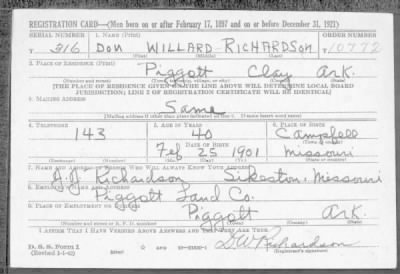 REGISTRATION CARD—(Men born on or after February 17, 1897 and on or before December 31, 1921)
SERIAL NUMBER 1. NAME (Print) ORDER NUMBER
T 316 DON WILLARD RICHARDSON T 10772
2. PLACE OF RESIDENCE (Print)
Piggott Clay Ark.
(Number and street) (Town, township, village, or city) (County) (State)
[THE PLACE OF RESIDENCE GIVEN ON THE LINE ABOVE WILL DETERMINE LOCAL BOARD
JURISDICTION; LINE 2 OF REGISTRATION CERTIFICATE WILL BE IDENTICAL]
3. MAILING ADDRESS
Same
[Mailing address if other than place indicated on line 2. If same insert word same]
4. TELEPHONE 5. AGE IN YEARS 6. PLACE OF BIRTH
143 40 Campbell
DATE OF BIRTH
Feb 25 1901 Missouri
7. NAME AND ADDRESS OF PERSON WHO WILL ALWAYS KNOW YOUR ADDRESS
J.J. Richardson Sikeston, Missouri
8. EMPLOYER'S NAME AND ADDRESS
Piggott Land Co.
9. PLACE OF EMPLOYMENT OR BUSINESS
Piggott Ark.
(Number and street or R. F. D. number) (Town) (County) (State)
I AFFIRM THAT I HAVE VERIFIED ABOVE ANSWERS AND THAT THEY ARE TRUE.
D. S. S. Form 1 D.W. Richardson
(Revised 1-1-42) (Registrant's signature)